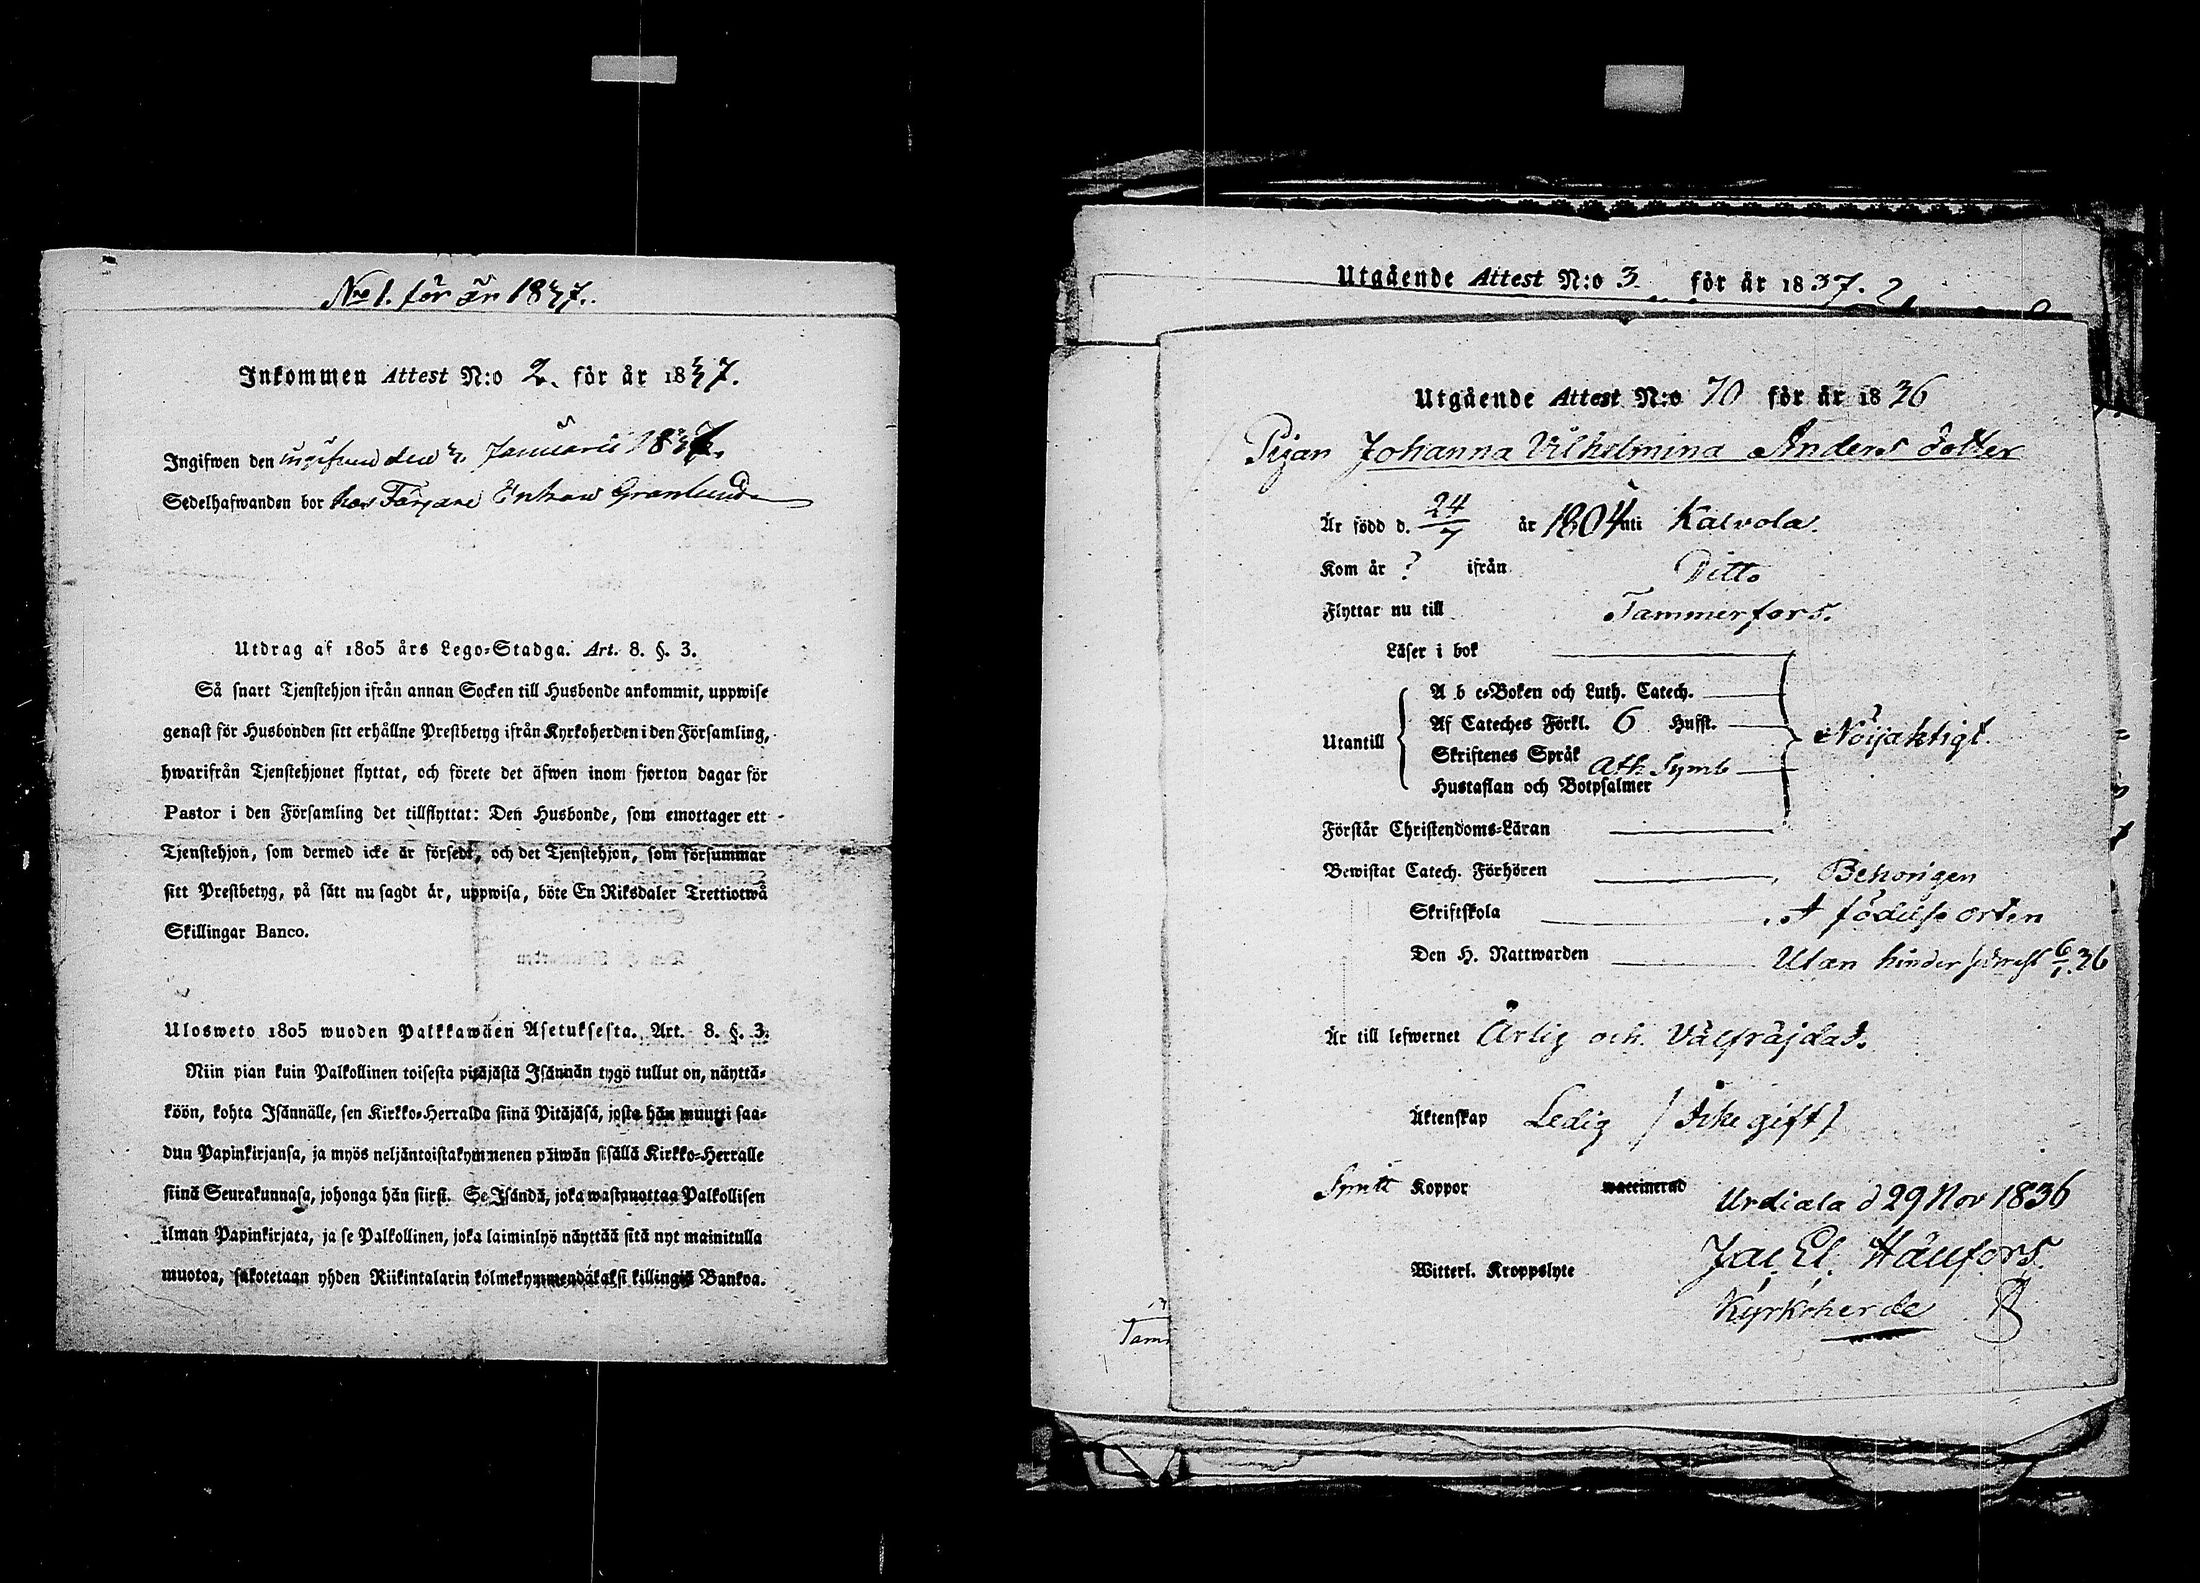 No 1. för år 1837.
Inkommen Attest N:o 2. för år 1837.
Ingifwen den ingifven den Januarii 1837.
Sedelhafwanden bor hos Färgare Enkan Granlund
Utdrag af 1805 års Lego-Stadga. Art. 8. §. 3.
Så snart Tjenstehjon ifrån annan Socken till Husbonde ankommit, uppwise
genast för Husbonden sitt erhållne Prestbetyg ifrån Kyrkoherden i den Församling,
hwarifrån Tjenstehjonet flyttat, och förete det äfwen inom fjorton dagar för
Pastor i den Församling det tillflyttat: Den Husbonde, som emottager ett
Tjenstehjon, som dermed icke är försedt, och det Tjenstehjon, som försummar
sitt Prestbetyg, på sätt nu sagdt är, uppwisa, böte En Riksdaler Trettiotwå
Skillingar Banco.
Ulosweto 1805 wuoden Palkkawäen Asetuksesta. Art. 8. §. 3.
Niin pian kuin Palkollinen toisesta pitäjästä Isännän tygö tullut on, näyttä-
köön, kohta Isännälle, sen Kirkko-Herralda siinä Pitäjäsä, josta hän muutti saa-
dun Papinkirjansa, ja myös neljäntoistakymmenen päiwän sisällä Kirkko-Herralle
siinä Seurakunnasa, johonga hän siirsi. Se Isändä, joka wastanottaa Palkollisen
ilman Papinkirjata, ja se Palkollinen, joka laiminlyö näyttää sitä nyt mainitulla
muotoa, sakotetaan yhden Riikintalarin kolmekymmendäkaksi killingiä Bankoa.
Utgående Attest N:o 3 för år 1837. 2
Utgående Attest N:o 70 för år 1836
Pigan Johanna Vilhelmina Anders dotter
Är född d. 24/7 år 1804 uti Kalvola.
Kom år ? ifrån Ditto
Flyttar nu till Tammerfors.
Läser i bok
A b c-Boken och Luth. Catech.
Af Cateches Förkl. 6 Hufst.
Utantill Nöijaktigt.
Skriftenes Språk Ath. Symb
Hustaflan och Botpsalmer
Förstår Christendoms-Läran
Bewistat Catech. Förhören Behörigen
Skriftskola I födelse orten
Den H. Nattwarden Utan hinder sednast 6/1 36
Är till lefwernet Ärlig och Välfräjdad.
Äktenskap Ledig / Icke gift /
Koppor waccinerad
Urdiala d 29 Nov 1836
Witterl. Kroppslyte
Kyrkoherde
Tam